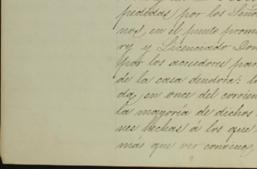 puestas, por los Seño
nos, en el punto prome
ry y Licenciado Don
por los acredores par
de la casa deudora: lo
da, en once del corrien
la mayoría de dichos
nes hechas á los que
más que ver convino,